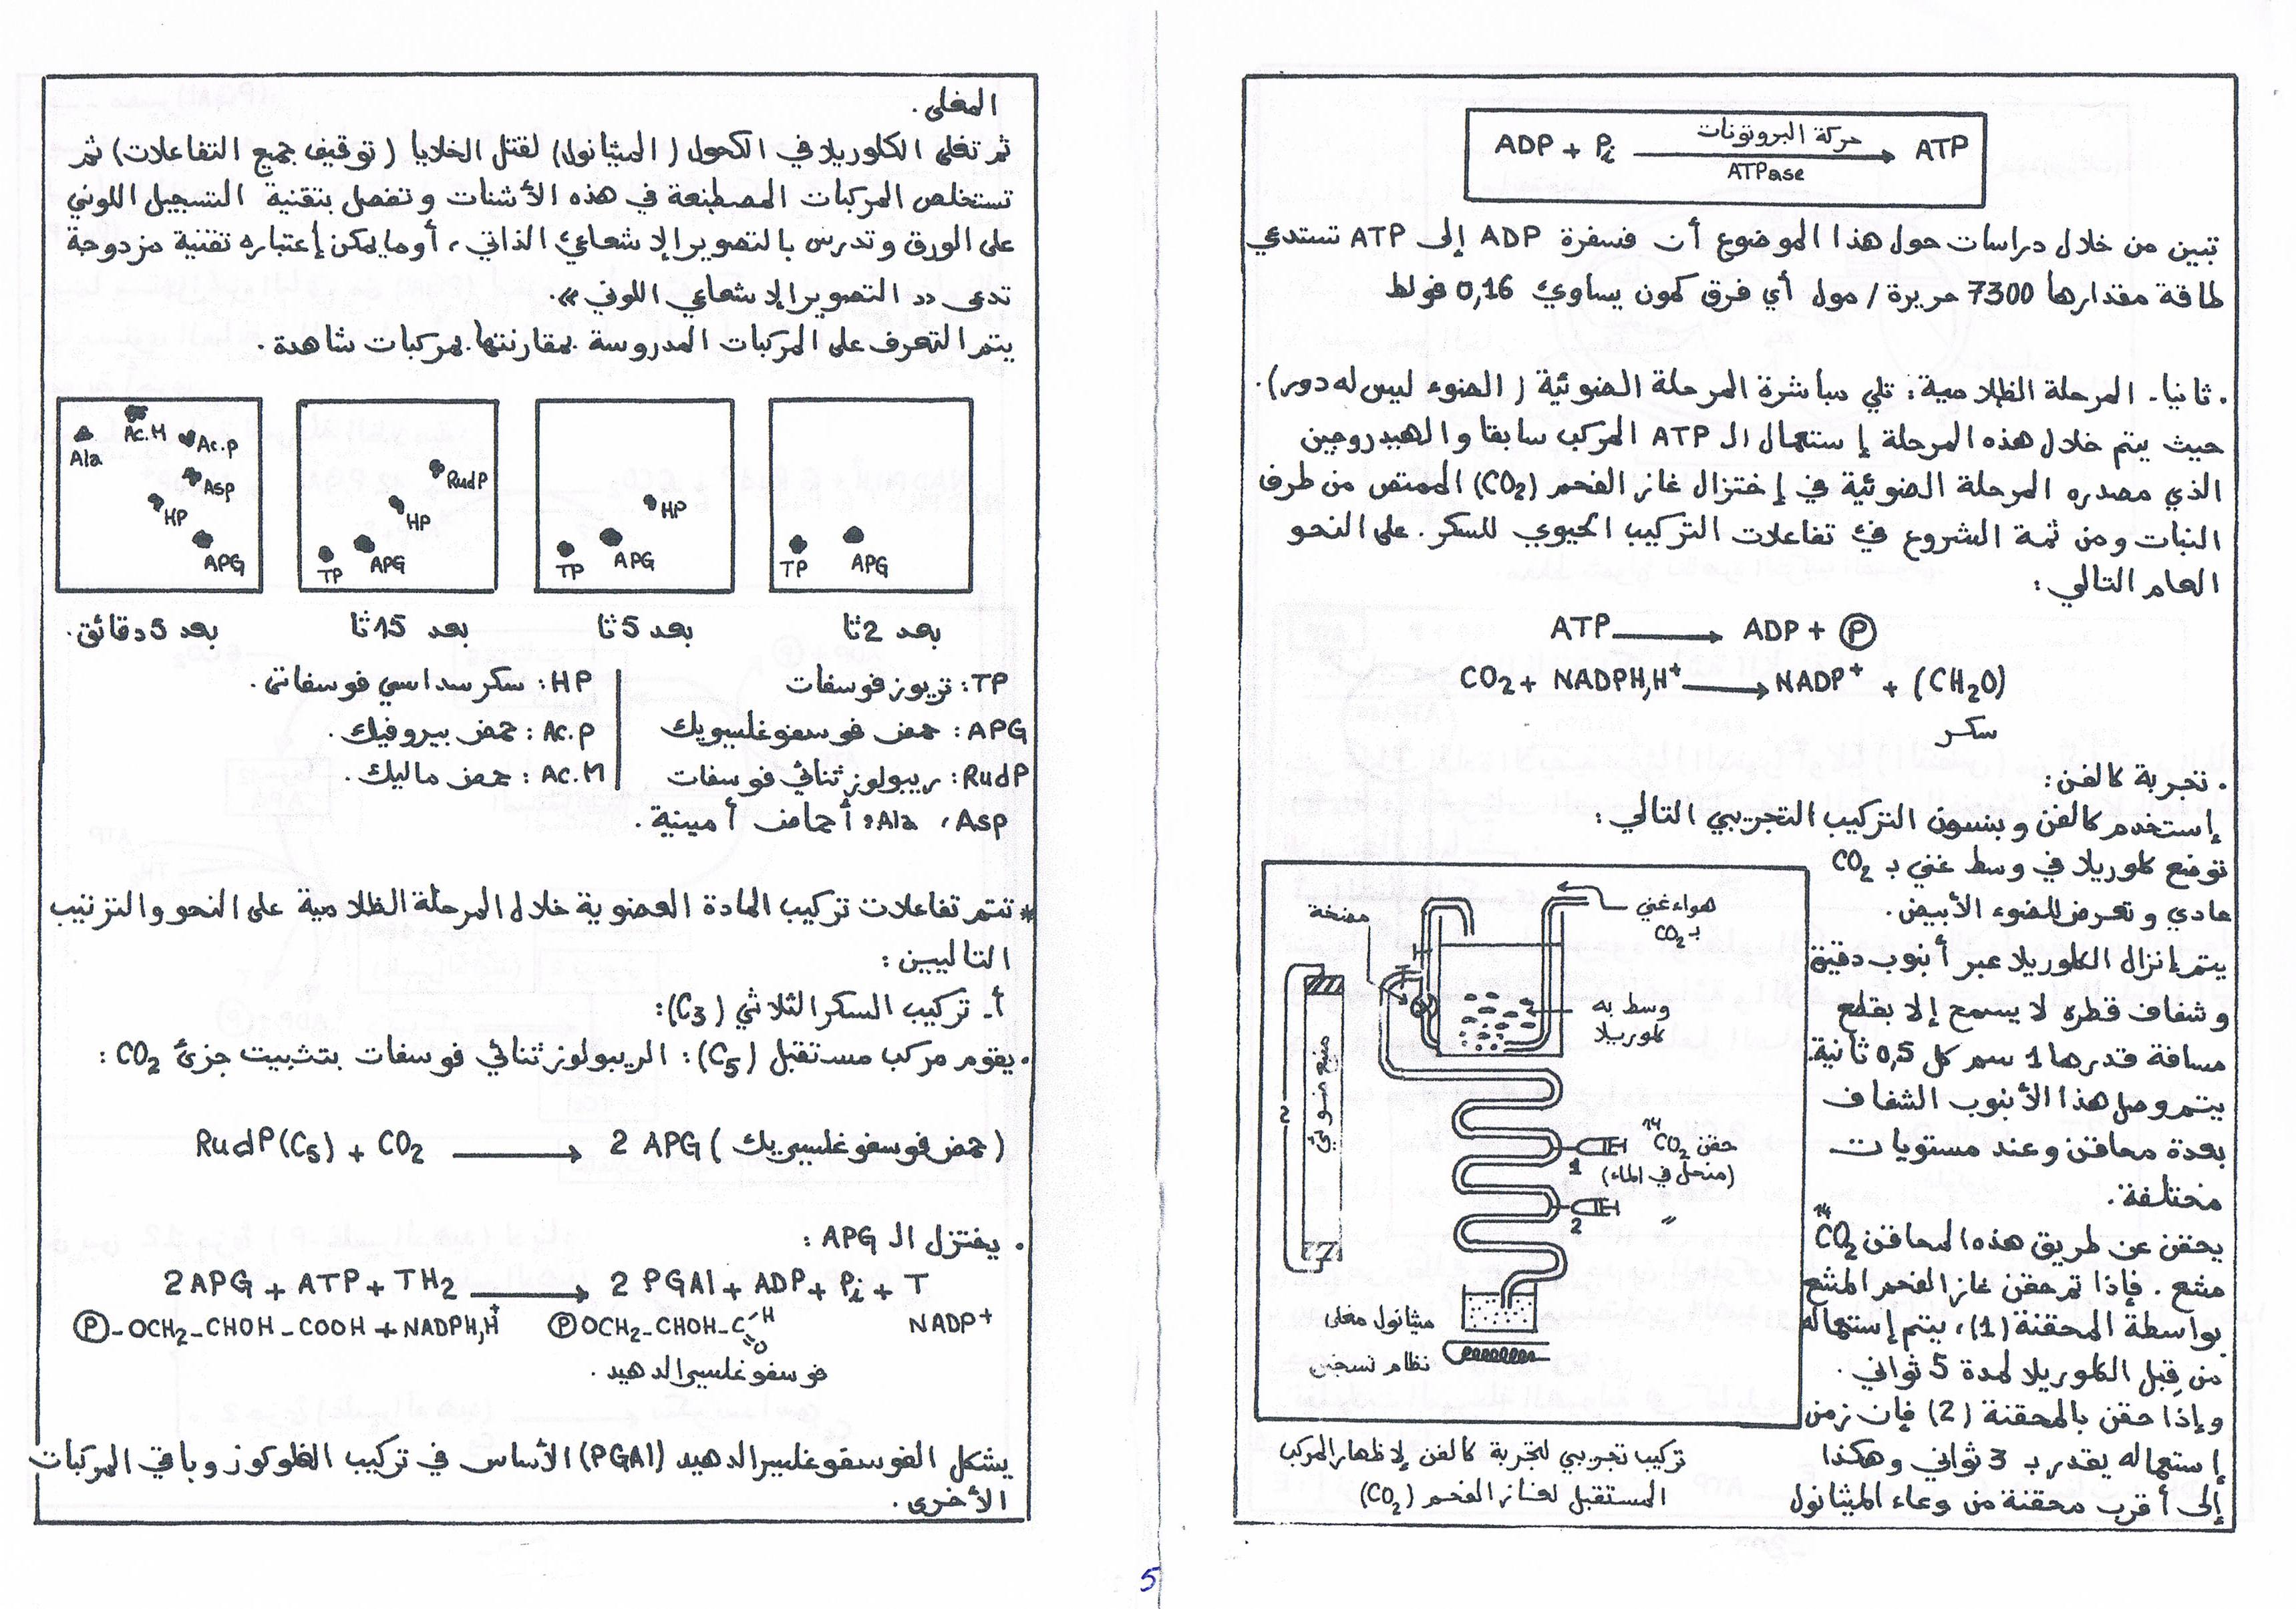 ADP + Pi ⟶ ATP
حركة البروتونات
ATPase
تبين من خلال دراسات حول هذا الموضوع أن فسفرة ADP إلى ATP تستدعي
طاقة مقدارها 7300 حريرة / مول أي فرق كمون يساوي 0,16 فولط
. ثانيا - المرحلة الظلامية : تلي مباشرة المرحلة الضوئية ( الضوء ليس له دور ) .
حيث يتم خلال هذه المرحلة إستعمال الـ ATP المركب سابقا والهيدروجين
الذي مصدره المرحلة الضوئية في إختزال غاز الفحم (CO₂) الممتص من طرف
النبات ومن ثمة الشروع في تفاعلات التركيب الحيوي للسكر . على النحو
العام التالي :
ATP ⟶ ADP + Ⓟ
CO₂ + NADPH,H⁺ ⟶ NADP⁺ + (CH₂O)
سكر
. تجربة كالفن :
إستخدم كالفن وبنسون التركيب التجريبي التالي :
توضع كلوريلا في وسط غني بـ CO₂
عادي وتعرض للضوء الأبيض .
يتم إنزال الكلوريلا عبر أنبوب دقيق
وشفاف قطره لا يسمح إلا بقطع
مسافة قدرها 1 سم كل 0,5 ثانية.
يتم وصل هذا الأنبوب الشفاف
بعدة محاقن وعند مستويات
مختلفة .
يحقن عن طريق هذه المحاقن ¹⁴CO₂
مشع . فإذا تم حقن غاز الفحم المشع
بواسطة المحقنة (1) ، يتم إستعماله
من قبل الكلوريلا لمدة 5 ثواني .
وإذا حقن بالمحقنة (2) فإن زمن
إستعماله يقدر بـ 3 ثواني وهكذا
إلى أقرب محقنة من وعاء الميثانول
مضخة
هواء غني
بـ CO₂
وسط به
كلوريلا
منبع ضوئي
حقن ¹⁴CO₂
(منحل في الماء)
1
2
〃
ميثانول مغلى
نظام تسخين
تركيب تجريبي لتجربة كالفن لإظهار المركب
المستقبل لغاز الفحم (CO₂)
المغلى .
ثم تغلى الكلوريلا في الكحول ( الميثانول ) لقتل الخلايا ( توقيف جميع التفاعلات ) ثم
تستخلص المركبات المصطنعة في هذه الأشنات وتفصل بتقنية التسجيل اللوني
على الورق وتدرس بالتصوير الإشعاعي الذاتي ، أو ما يمكن إعتباره تقنية مزدوجة
تدعى « التصوير الإشعاعي اللوني ».
يتم التعرف على المركبات المدروسة بمقارنتها بمركبات شاهدة .
TP APG
بعد 2 ثا
HP
TP APG
بعد 5 ثا
RudP
HP
TP APG
بعد 15 ثا
Ac.M
Ala
Ac.p
Asp
HP
APG
بعد 5 دقائق .
TP : تريوز فوسفات
HP : سكر سداسي فوسفاتي .
APG : حمض فوسفوغليسويك
Ac.p : حمض بيروفيك .
RudP : ريبولوز ثنائي فوسفات
Ac.M : حمض ماليك .
Asp ، Ala : أحماض أمينية .
* تتم تفاعلات تركيب المادة العضوية خلال المرحلة الظلامية على النحو والترتيب
التاليين :
أ - تركيب السكر الثلاثي (C₃) :
. يقوم مركب مستقبل (C₅) : الريبولوز ثنائي فوسفات بتثبيت جزئ CO₂ :
RudP(C₅) + CO₂ ⟶ 2 APG ( حمض فوسفوغليسيريك )
. يختزل الـ APG :
2 APG + ATP + TH₂ ⟶ 2 PGAl + ADP + Pi + T
Ⓟ-OCH₂-CHOH-COOH + NADPH,H⁺ ⓅOCH₂-CHOH-C H O NADP⁺
فوسفوغليسيرالدهيد .
يشكل الفوسفوغليسيرالدهيد (PGAl) الأساس في تركيب الغلوكوز وباقي المركبات
الأخرى .
5